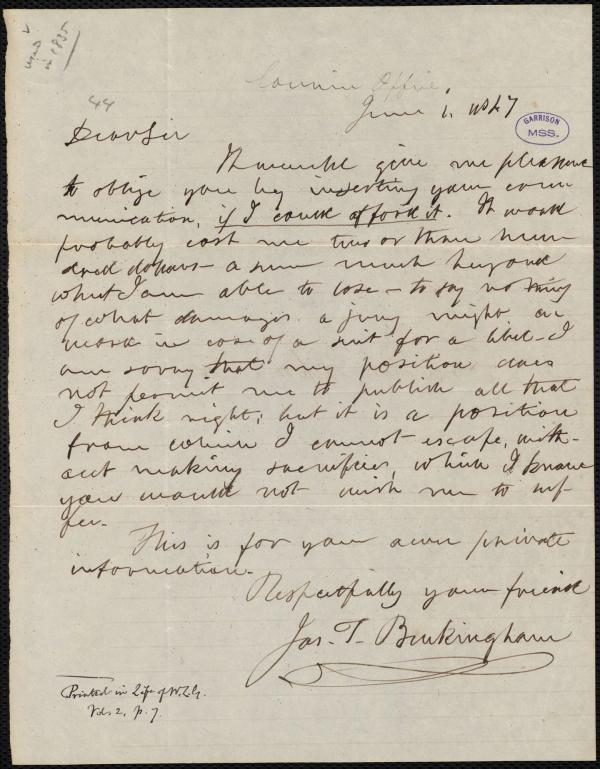 used
in 1835
44
Courier Office,
June 1, 1837
GARRISON
MSS.
Dear Sir
It would give me pleasure
to oblige you by inserting your com
munication, if I could afford it. It would
probably cost me two or three hun
dred dollars - a sum much beyond
what I am able to lose - to say nothing
of what damages a jury might a
ward in case of a suit for a libel. I
am sorry that my position does
not permit me to publish all that
I think right; but it is a position
from which I cannot escape, with-
out making sacrifices, which I know
you would not wish me to suf-
fer.
This is for your own private
information.
Respectfully your friend
Jos. T. Buckingham
Printed in Life of W.L.G.
Vol. 2, p. 7.